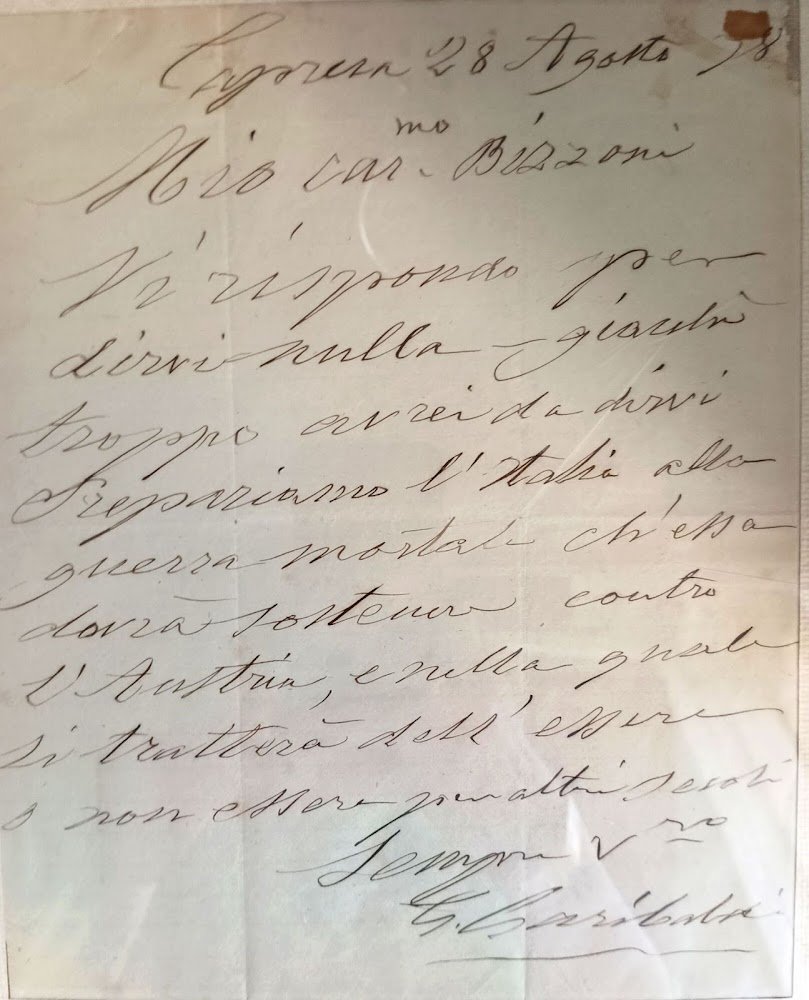 Caprera 28 Agosto 78
Mio car.mo Bizzoni
Vi rispondo per
dirvi nulla – giacchè
troppo avrei da dirvi
Prepariamo l'Italia alla
guerra mortale ch'essa
dovrà sostenere contro
l'Austria, e nella quale
si tratterà dell'essere
o non essere per altri secoli
Sempre Vro
G. Garibaldi